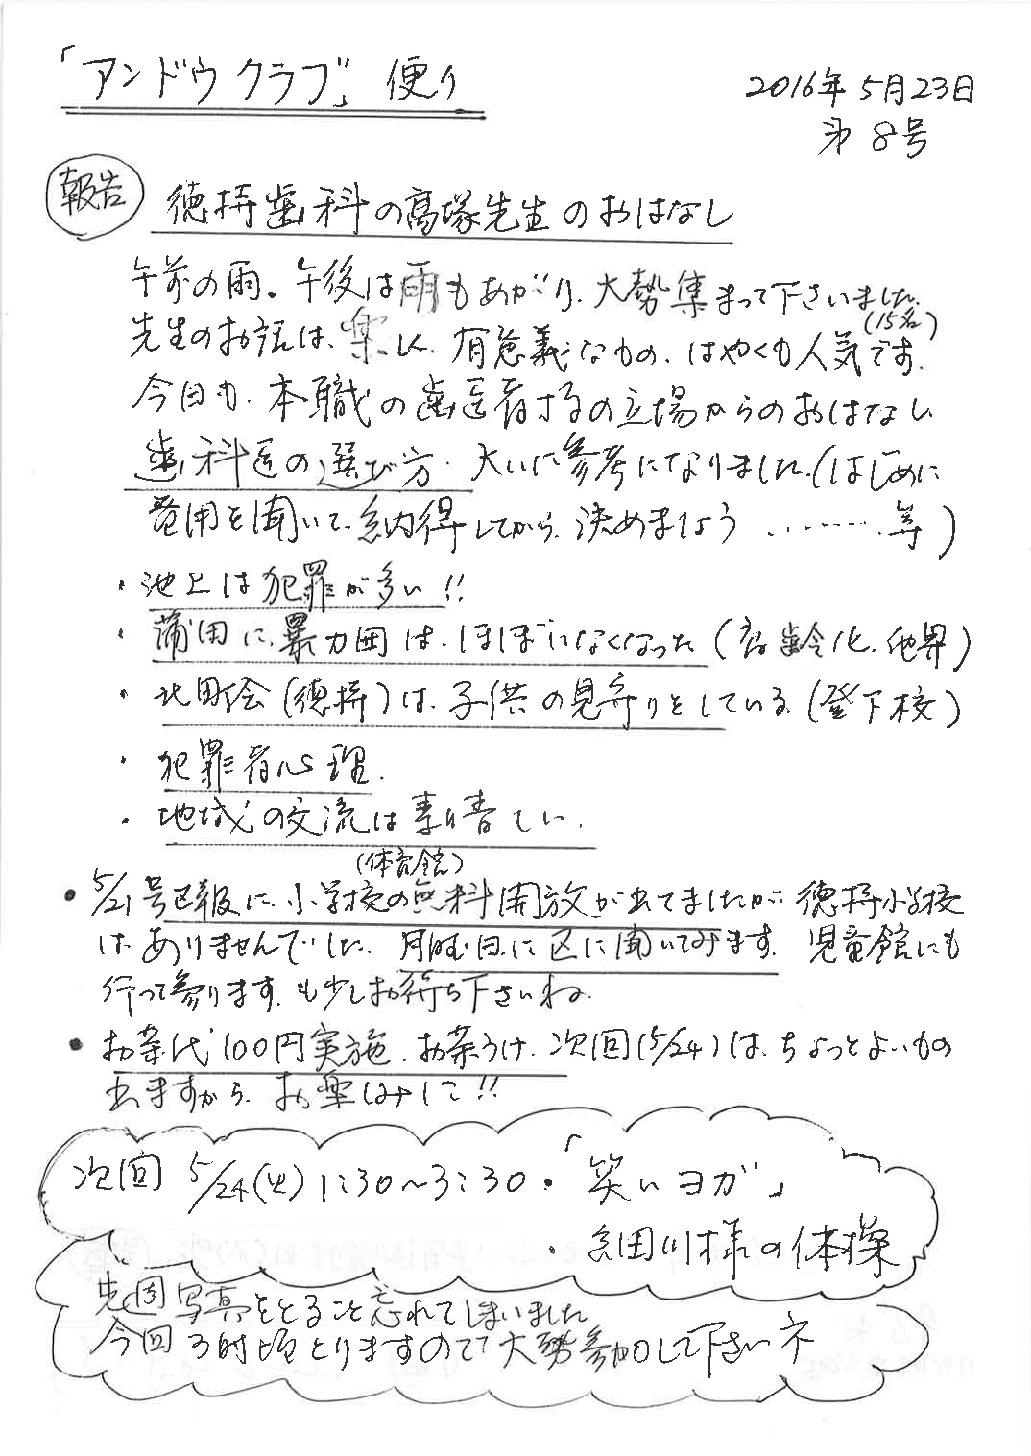 「アンドウクラブ」便り
2016年5月23日
第8号
報告 徳持歯科の髙塚先生のおはなし
午前の雨。午後は雨もあがり、大勢集まって下さいました。
(15名)
先生のお話は、楽しく、有意義なもの、はやくも人気です。
今日も、本職の歯医者するの立場からのおはなし
歯科医の選び方。大いに参考になりました。(はじめに
費用を聞いて、納得してから、決めましょう ........等)
・池上は犯罪が多い!!
・蒲田に、暴力団は、ほぼいなくなった(高齢化、他界)
・北町会(徳持)は、子供の見守りをしている。(登下校)
・犯罪者心理。
・地域の交流は素晴しい。
(体育館)
・5/21号区報に、小学校の無料開放が出てましたが、徳持小学校
はありませんでした。月曜日に区に聞いてみます。児童館にも
行って参ります。も少しお待ち下さいね。
・お茶代100円実施。お茶うけ、次回(5/24)は、ちょっとよいもの
出ますから、お楽しみに!!
次回 5/24(火)1:30〜3:30・「笑いヨガ」
・糸田川様の体操
先週写真をとること忘れてしまいました
今回3時頃とりますので大勢参加して下さいネ